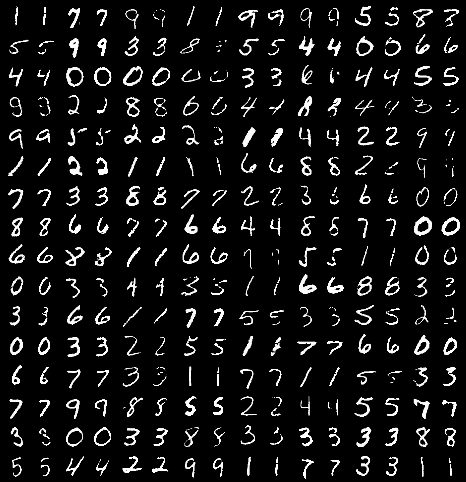 1 1 7 7 9 9 1 1 9 9 9 9 5 5 8 3
5 5 9 9 3 3 8 5 5 4 4 0 0 6 6
4 4 0 0 0 0 0 0 3 3 6 4 4 5 5
9 9 2 2 8 8 6 0 4 4 8 8 4 4 3
9 9 5 5 2 2 2 2 1 1 4 4 2 2 9 9
1 1 2 2 1 1 1 1 6 6 8 8 2 9 9
7 7 3 3 8 8 7 7 2 2 3 6 6 0 0
8 8 6 6 7 7 6 6 4 4 8 8 7 7 0 0
6 6 8 8 1 1 6 6 5 5 1 1 0 0
0 0 3 3 4 4 3 5 1 1 6 6 8 8 3 3
3 3 6 6 1 1 7 7 5 5 3 3 5 5 2 2
0 0 3 3 2 2 5 5 1 1 7 7 6 6 0 0
6 6 7 7 3 3 1 1 7 7 1 1 5 5 3 3
7 7 9 9 8 8 5 5 2 2 4 4 5 5 7 7
3 3 0 0 3 3 8 8 3 3 3 3 3 3 8 8
5 5 4 4 2 2 9 9 1 1 7 7 3 3 1 1